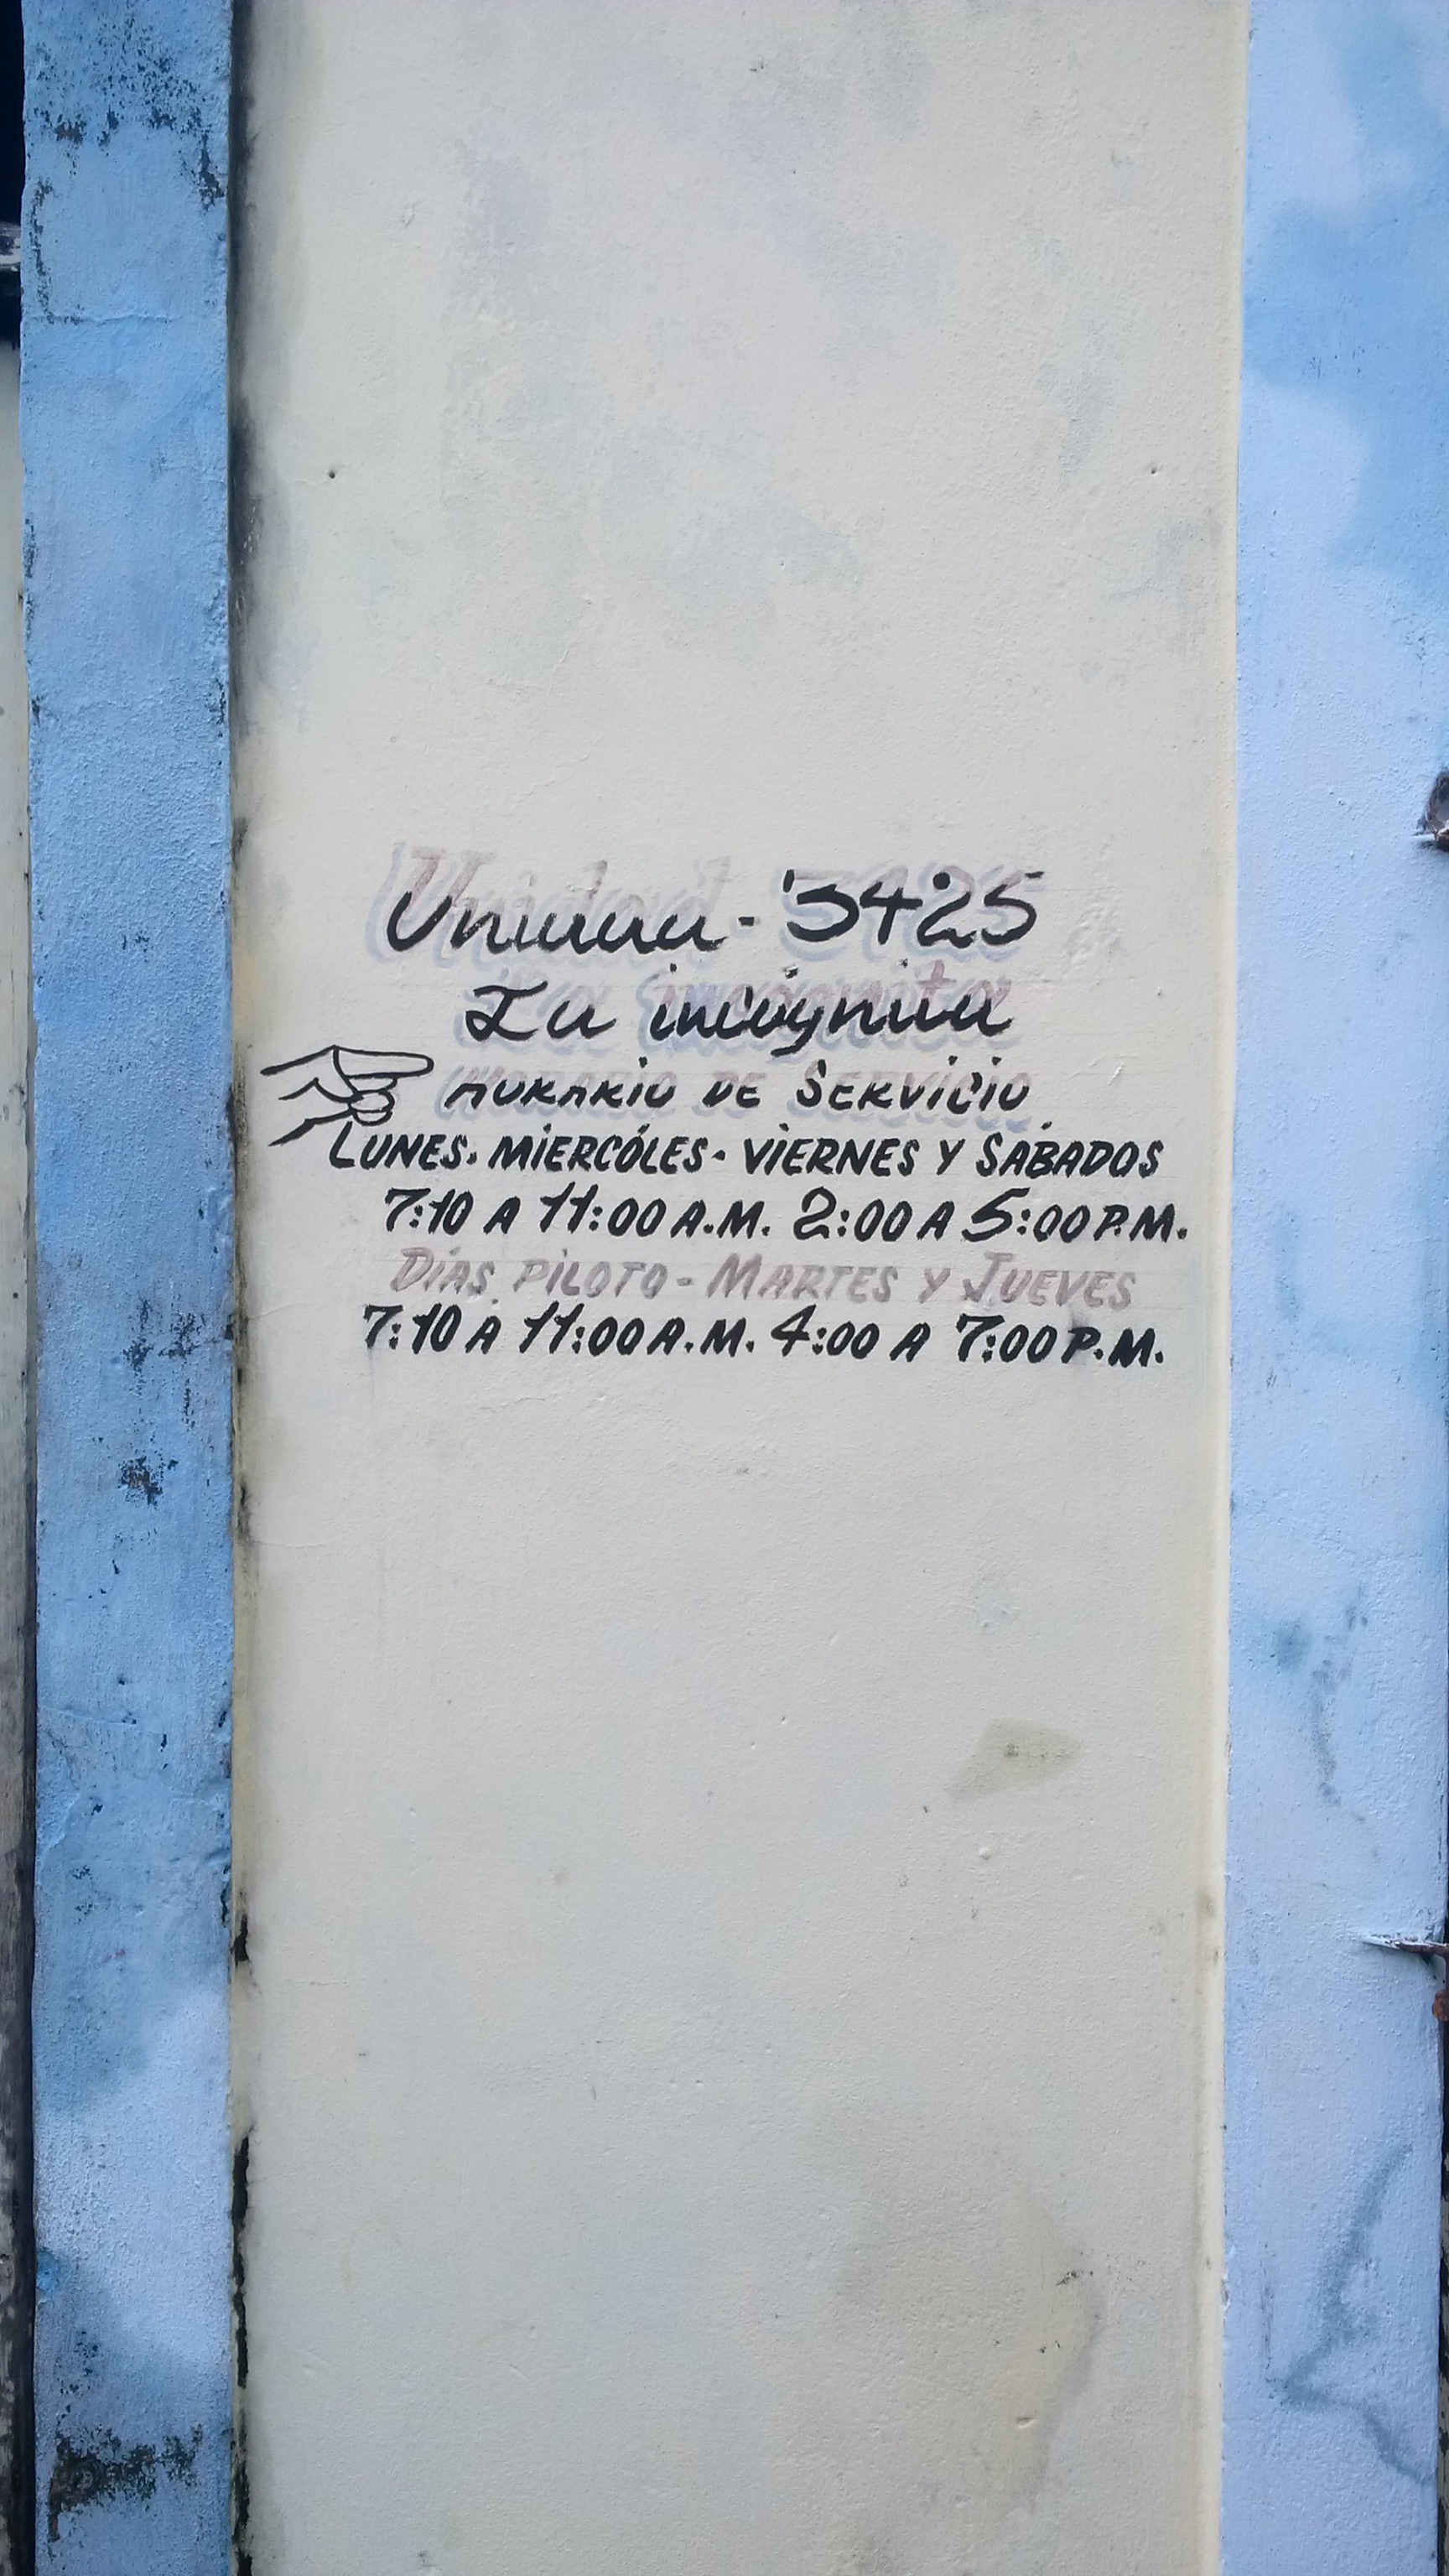 Unidad - 5425
La incógnita
HORARIO DE SERVICIO
LUNES. MIERCÓLES - VIERNES Y SÁBADOS
7:10 A 11:00 A.M. 2:00 A 5:00 P.M.
DÍAS PILOTO - MARTES Y JUEVES
7:10 A 11:00 A.M. 4:00 A 7:00 P.M.